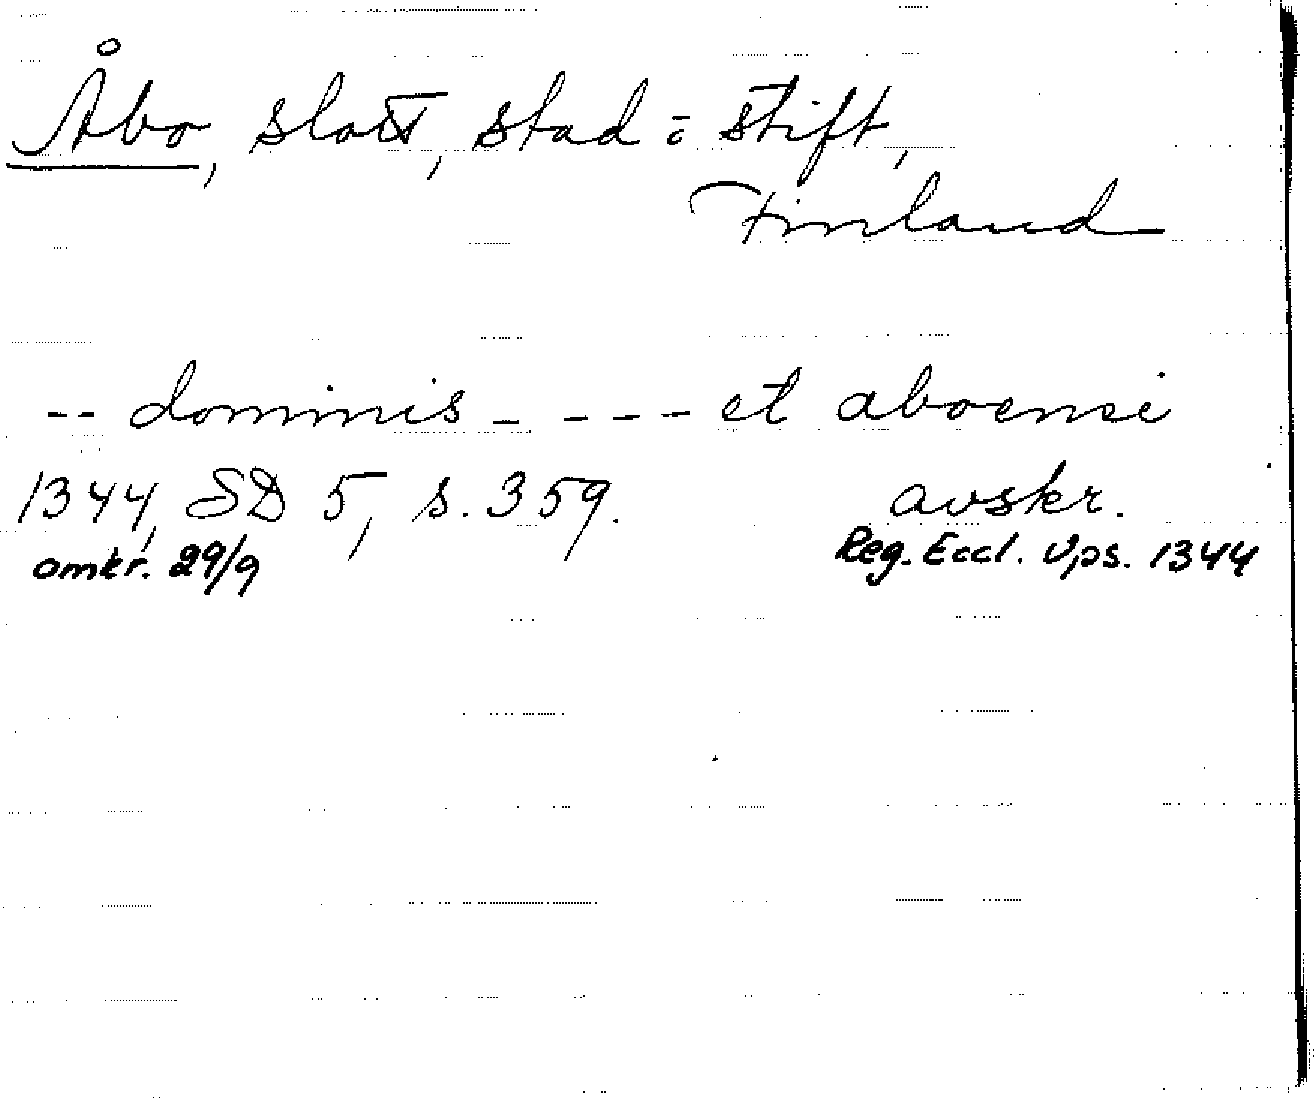 Åbo, slott, stad o stift,
Finland
-- dominis - --- et aboensi
1344, SD 5, s. 359. avskr.
omkr. 29/9 Reg. Eccl. Ups. 1344